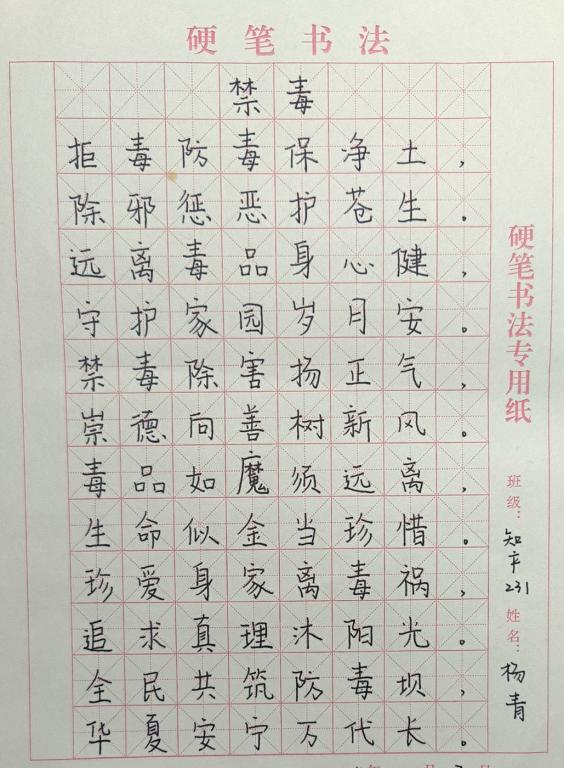 硬笔书法
禁毒
拒毒防毒保净土，
除邪惩恶护苍生。
远离毒品身心健，
守护家园岁月安。
禁毒除害扬正气，
崇德向善树新风。
毒品如魔须远离，
生命似金当珍惜。
珍爱身家离毒祸，
追求真理沐阳光。
全民共筑防毒坝，
华夏安宁万代长。
硬笔书法专用纸
班级：知产231
姓名：杨青